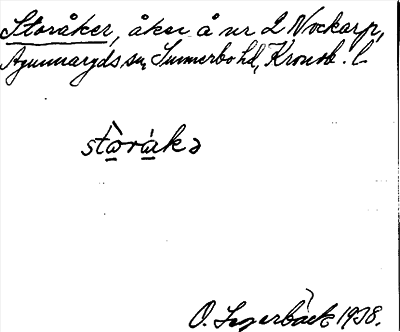 Storåker, åker å nr 2 Nockarp,
Agunnaryds sn, Sunnerbo hd, Kronob. l.
stòráka
O. Segerbäck 1938.